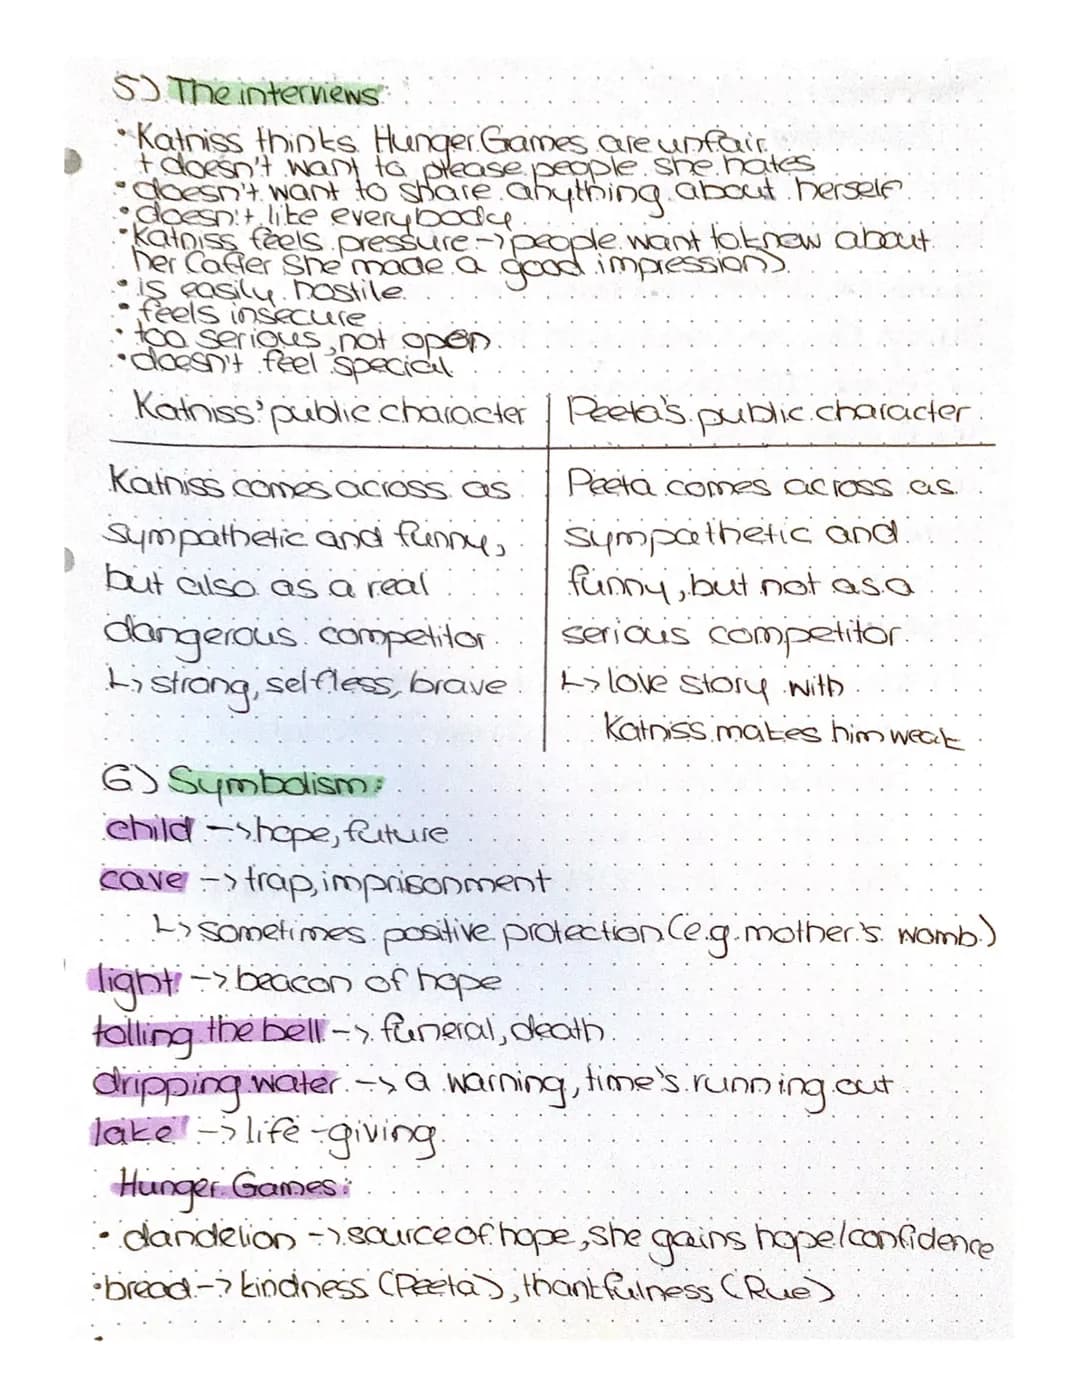 5) The interviews:
• Katniss thinks Hunger Games are unfair
+ doesn't want to please people she hates
• doesn't want to share anything about herself
• doesn't like everybody
• Katniss feels pressure -> people want to know about
her (after she made a good impression)
• is easily hostile
• feels insecure
• too serious, not open
• doesn't feel special
Katniss' public character | Peeta's public character
Katniss comes across as
sympathetic and funny,
but also as a real
dangerous competitor
↳ strong, selfless, brave
Peeta comes across as
sympathetic and
funny, but not as a
serious competitor
↳ love story with
Katniss makes him weak
6) Symbolism:
child -> hope, future
cave -> trap, imprisonment
↳ sometimes positive protection (e.g. mother's womb)
light -> beacon of hope
tolling the bell -> funeral, death
dripping water -> a warning, time's running out
lake -> life-giving
Hunger Games:
• dandelion -> source of hope, she gains hope/confidence
• bread -> kindness (Peeta), thankfulness (Rue)
•